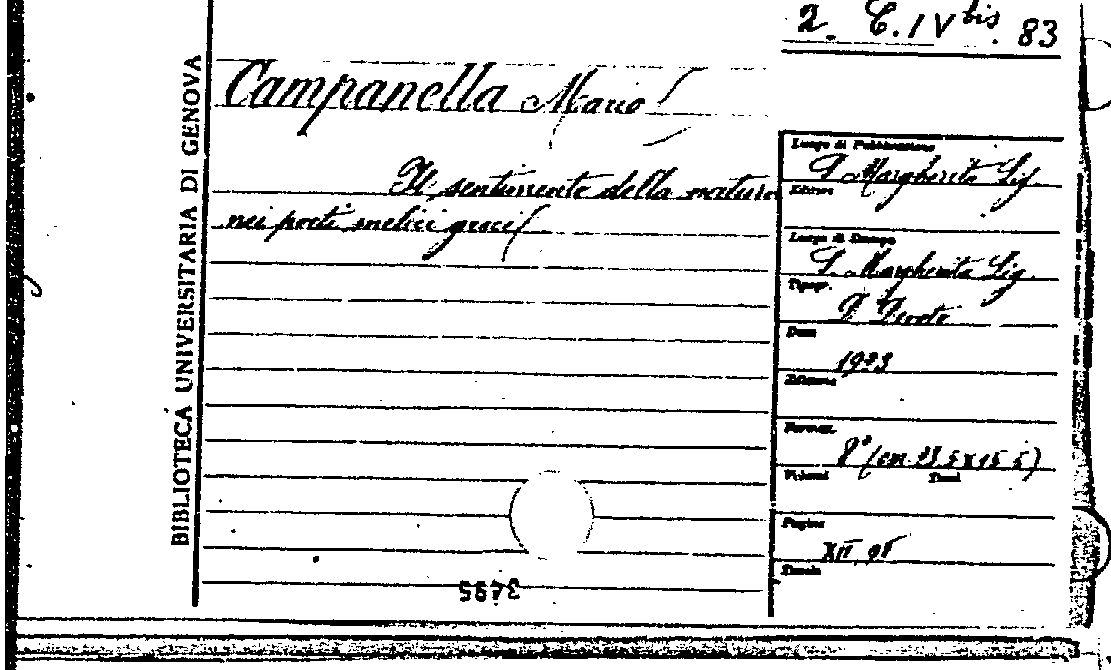 2. C. IV bis. 83
BIBLIOTECA UNIVERSITARIA DI GENOVA
Campanella Mario
Il sentimento della natura
nei poeti melici greci
Luogo di Pubblicazione
S. Margherita Lig.
Editore
Luogo di Stampa
S. Margherita Lig.
Tipogr.
Devoto
Data
1923
Edizione
Format.
8° (cm 23,5x15,5)
Volumi Tomi
Pagine
XII
Tavole
3495